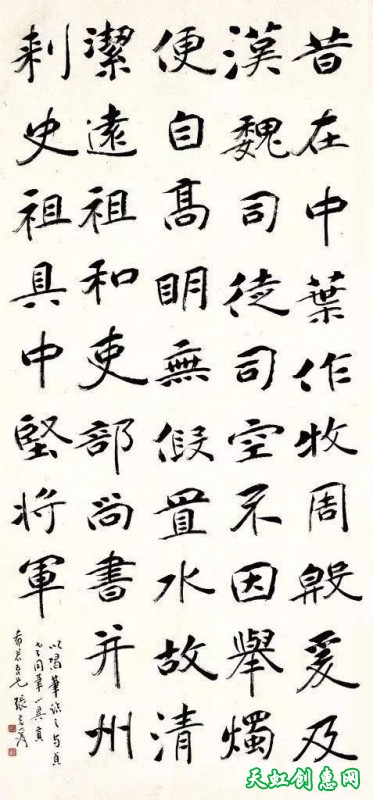 昔在中葉作牧周殷爰及
漢魏司徒司空不因舉燭
便自高明無假置水故清
潔遠祖和吏部尚書并州
刺史祖具中堅將軍
天虹创意网